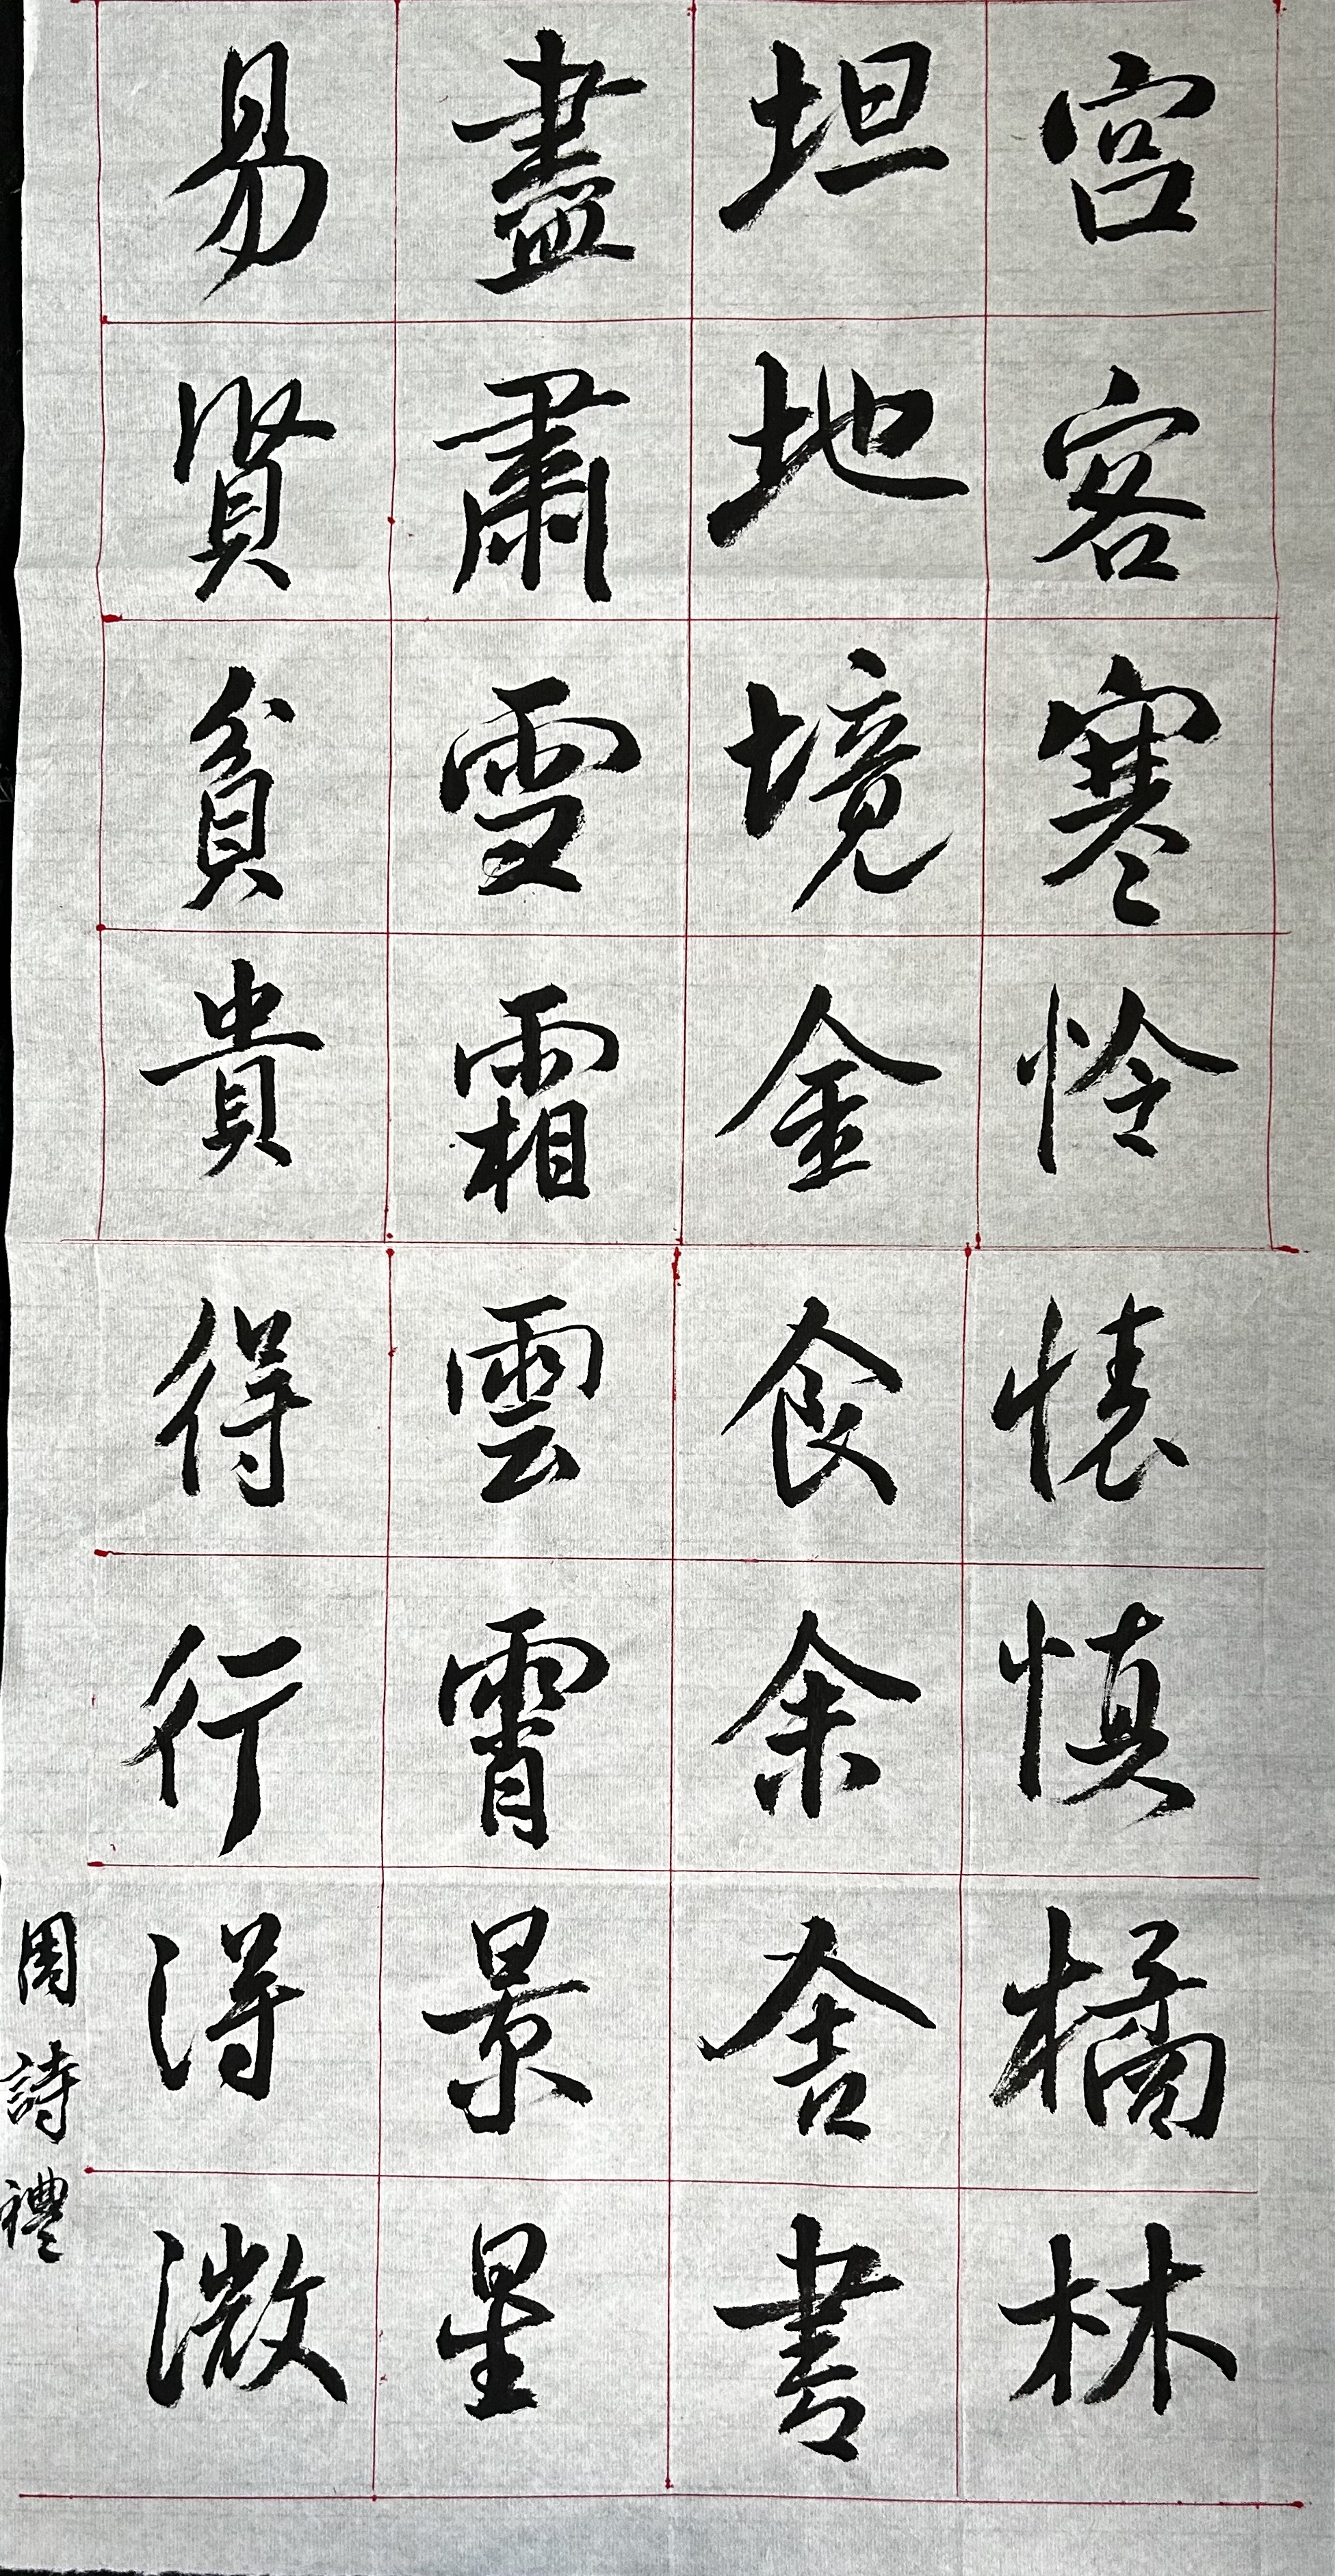 宫客寒怜懷慎橘林
坦地境金食余舍書
盡肅雪霜雲霄景星
易賢貧貴得行得微
周詩禮